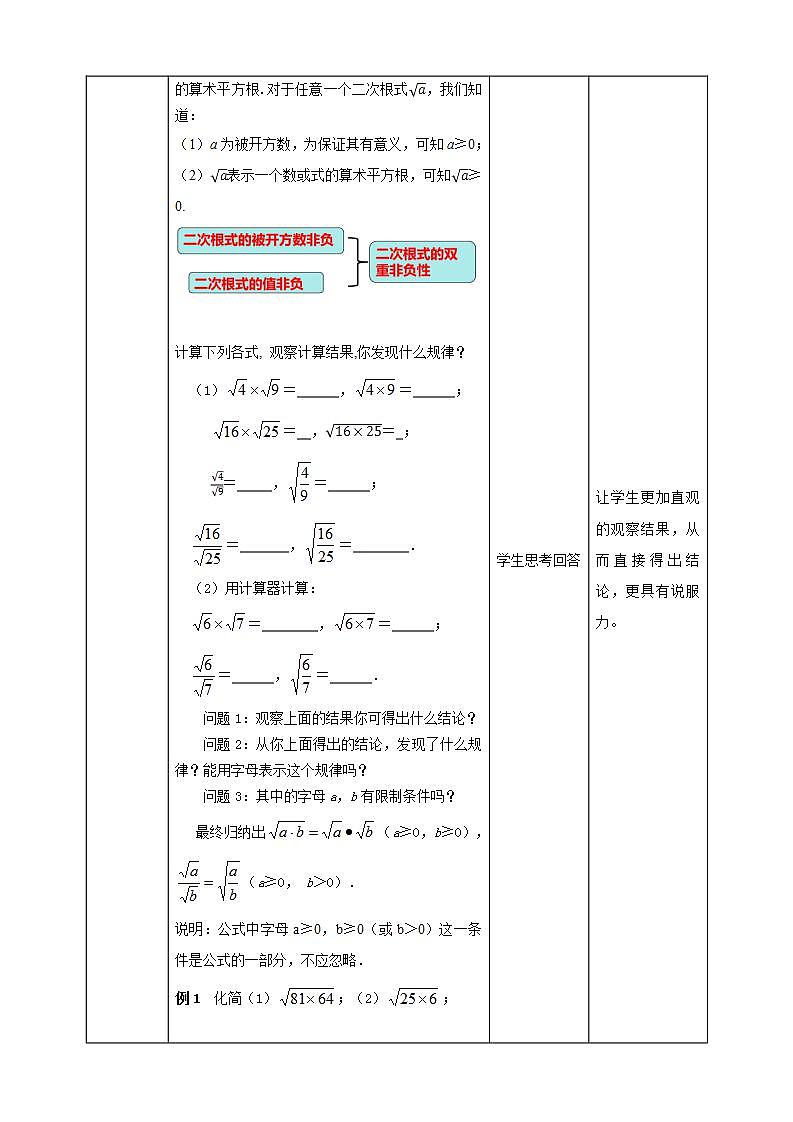 的算术平方根.对于任意一个二次根式√a，我们知
道：
（1）a为被开方数，为保证其有意义，可知a≥0；
（2）√a表示一个数或式的算术平方根，可知√a≥
0.
二次根式的被开方数非负
二次根式的值非负
二次根式的双
重非负性
计算下列各式, 观察计算结果,你发现什么规律？
（1）√4×√9=______，√(4×9)=______；
√16×√25=__，√(16×25)=_；
√4/√9=_____，√(4/9)=______；
√16/√25=_______，√(16/25)=________.
（2）用计算器计算：
√6×√7=________，√(6×7)=______；
√6/√7=______，√(6/7)=______.
问题1：观察上面的结果你可得出什么结论？
问题2：从你上面得出的结论，发现了什么规
律？能用字母表示这个规律吗？
问题3：其中的字母a，b有限制条件吗？
最终归纳出√(a·b)=√a•√b（a≥0，b≥0），
√a/√b=√(a/b)（a≥0， b>0）.
说明：公式中字母a≥0，b≥0（或b>0）这一条
件是公式的一部分，不应忽略.
例1 化简（1）√(81×64)；（2）√(25×6)；
学生思考回答
让学生更加直观
的观察结果，从
而直接得出结
论，更具有说服
力。